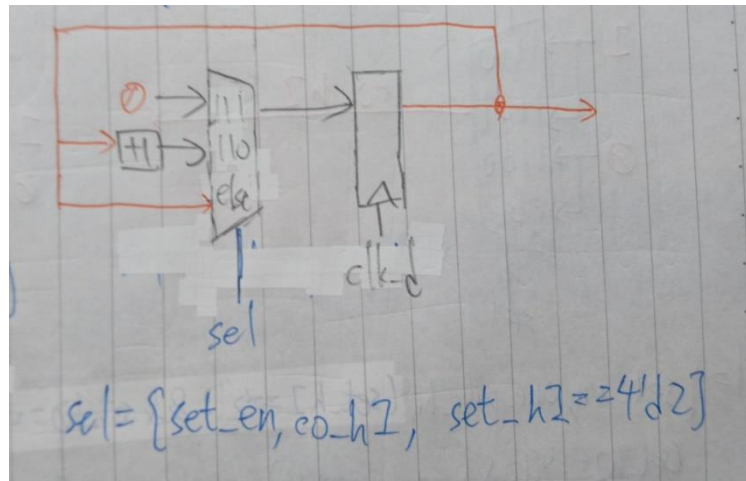 0
111
+1
110
else
clk_d
sel
sel={set_en, co_h1, set_h1==4'd2}